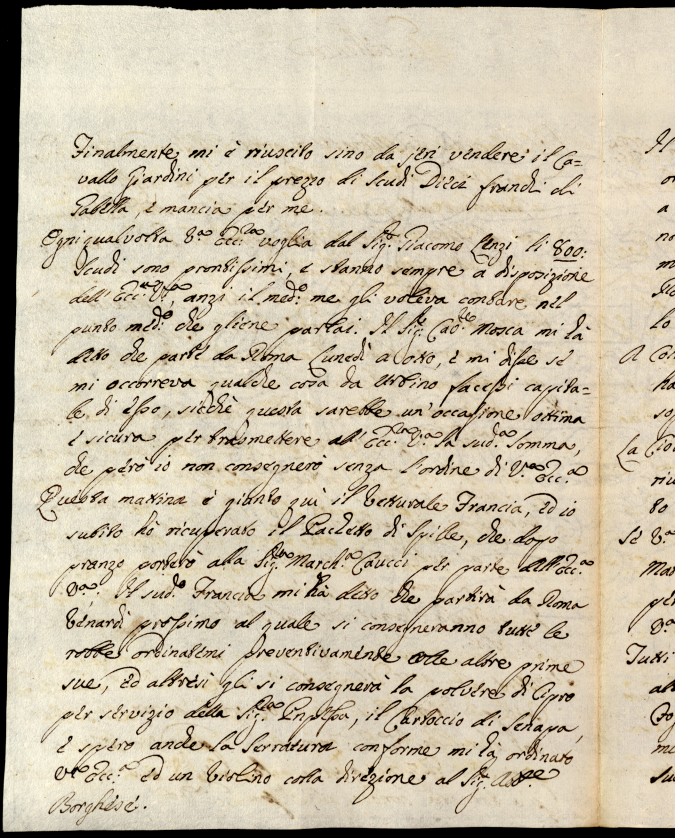 Finalmente mi è riuscito sino da jeri vendere il Ca=
vallo Giardini per il prezzo di scudi Dieci franchi di
Gabella, e mancia per me.
Ogniqualvolta V.a Ecc.za voglia dal Sig.r Giacomo Lenzi li 800:
Scudi sono prontissimi, e stanno sempre a disposizione
dell'Ecc.za V.a, anzi il med.o me gli voleva contare nel
punto med.o che gliene parlai. Il Sig.r Cav.re Mosca mi hà
detto che parte da Roma Lunedì a otto, e mi disse se
mi occorreva qualche cosa da Urbino facessi capita=
le di esso, sicchè questa sarebbe un'occasione ottima
e sicura per trasmettere all'Ecc.za V.a la sud.a somma,
che però io non consegnerò senza l'ordine di V.a Ecc.a
Questa mattina è giunto quì il Vetturale Francia, ed io
subito hò ricuperato il Pachetto di Spille, che dopo
pranzo porterò alla Sig.ra March.a Caucci per parte dell'Ecc.a
V.a. Il sud.o Francia mi hà detto che partirà da Roma
Venardì prossimo al quale si consegneranno tutte le
robbe ordinatemi preventivamente colle altre prime
sue, ed altresì gli si consegnerà la polvere di Cipro
per servizio della Sig.ra, il Cartoccio di Senapa,
e spero anche la Serratura conforme mi hà ordinato
V.a Ecc.a ed un Violino colla direzione al Sig.r
Borghese.